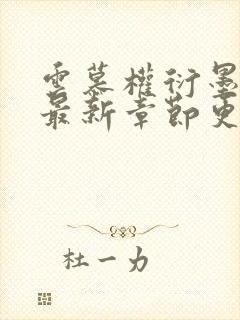 云慕權衍墨
最新章節更
杜一力